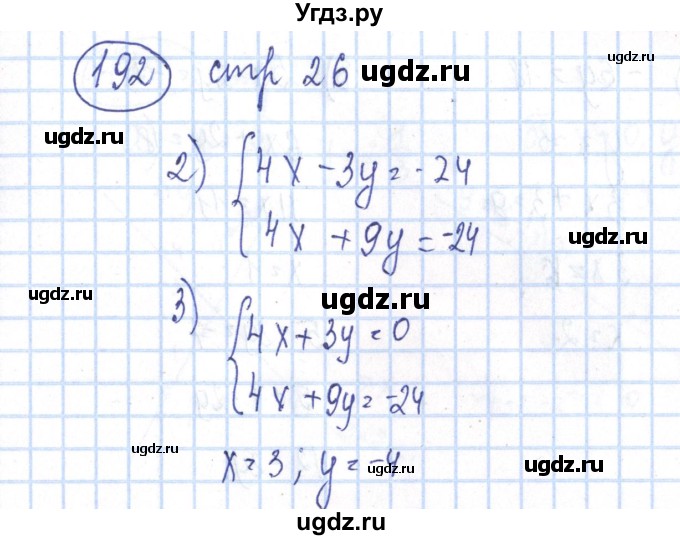 Угдз.ру
192 стр 26 ugdz.ru
ugdz.ru ugdz.ru
2) 4x - 3y = -24
ugdz.ru 4x + 9y = -24 ugdz.ru
ugdz.ru 3) ugdz.ru
4x + 3y = 0
ugdz.ru
4x + 9y = -24
ugdz.ru
x = 3; y = -4 ugdz.ru ugdz.ru
ugdz.ru